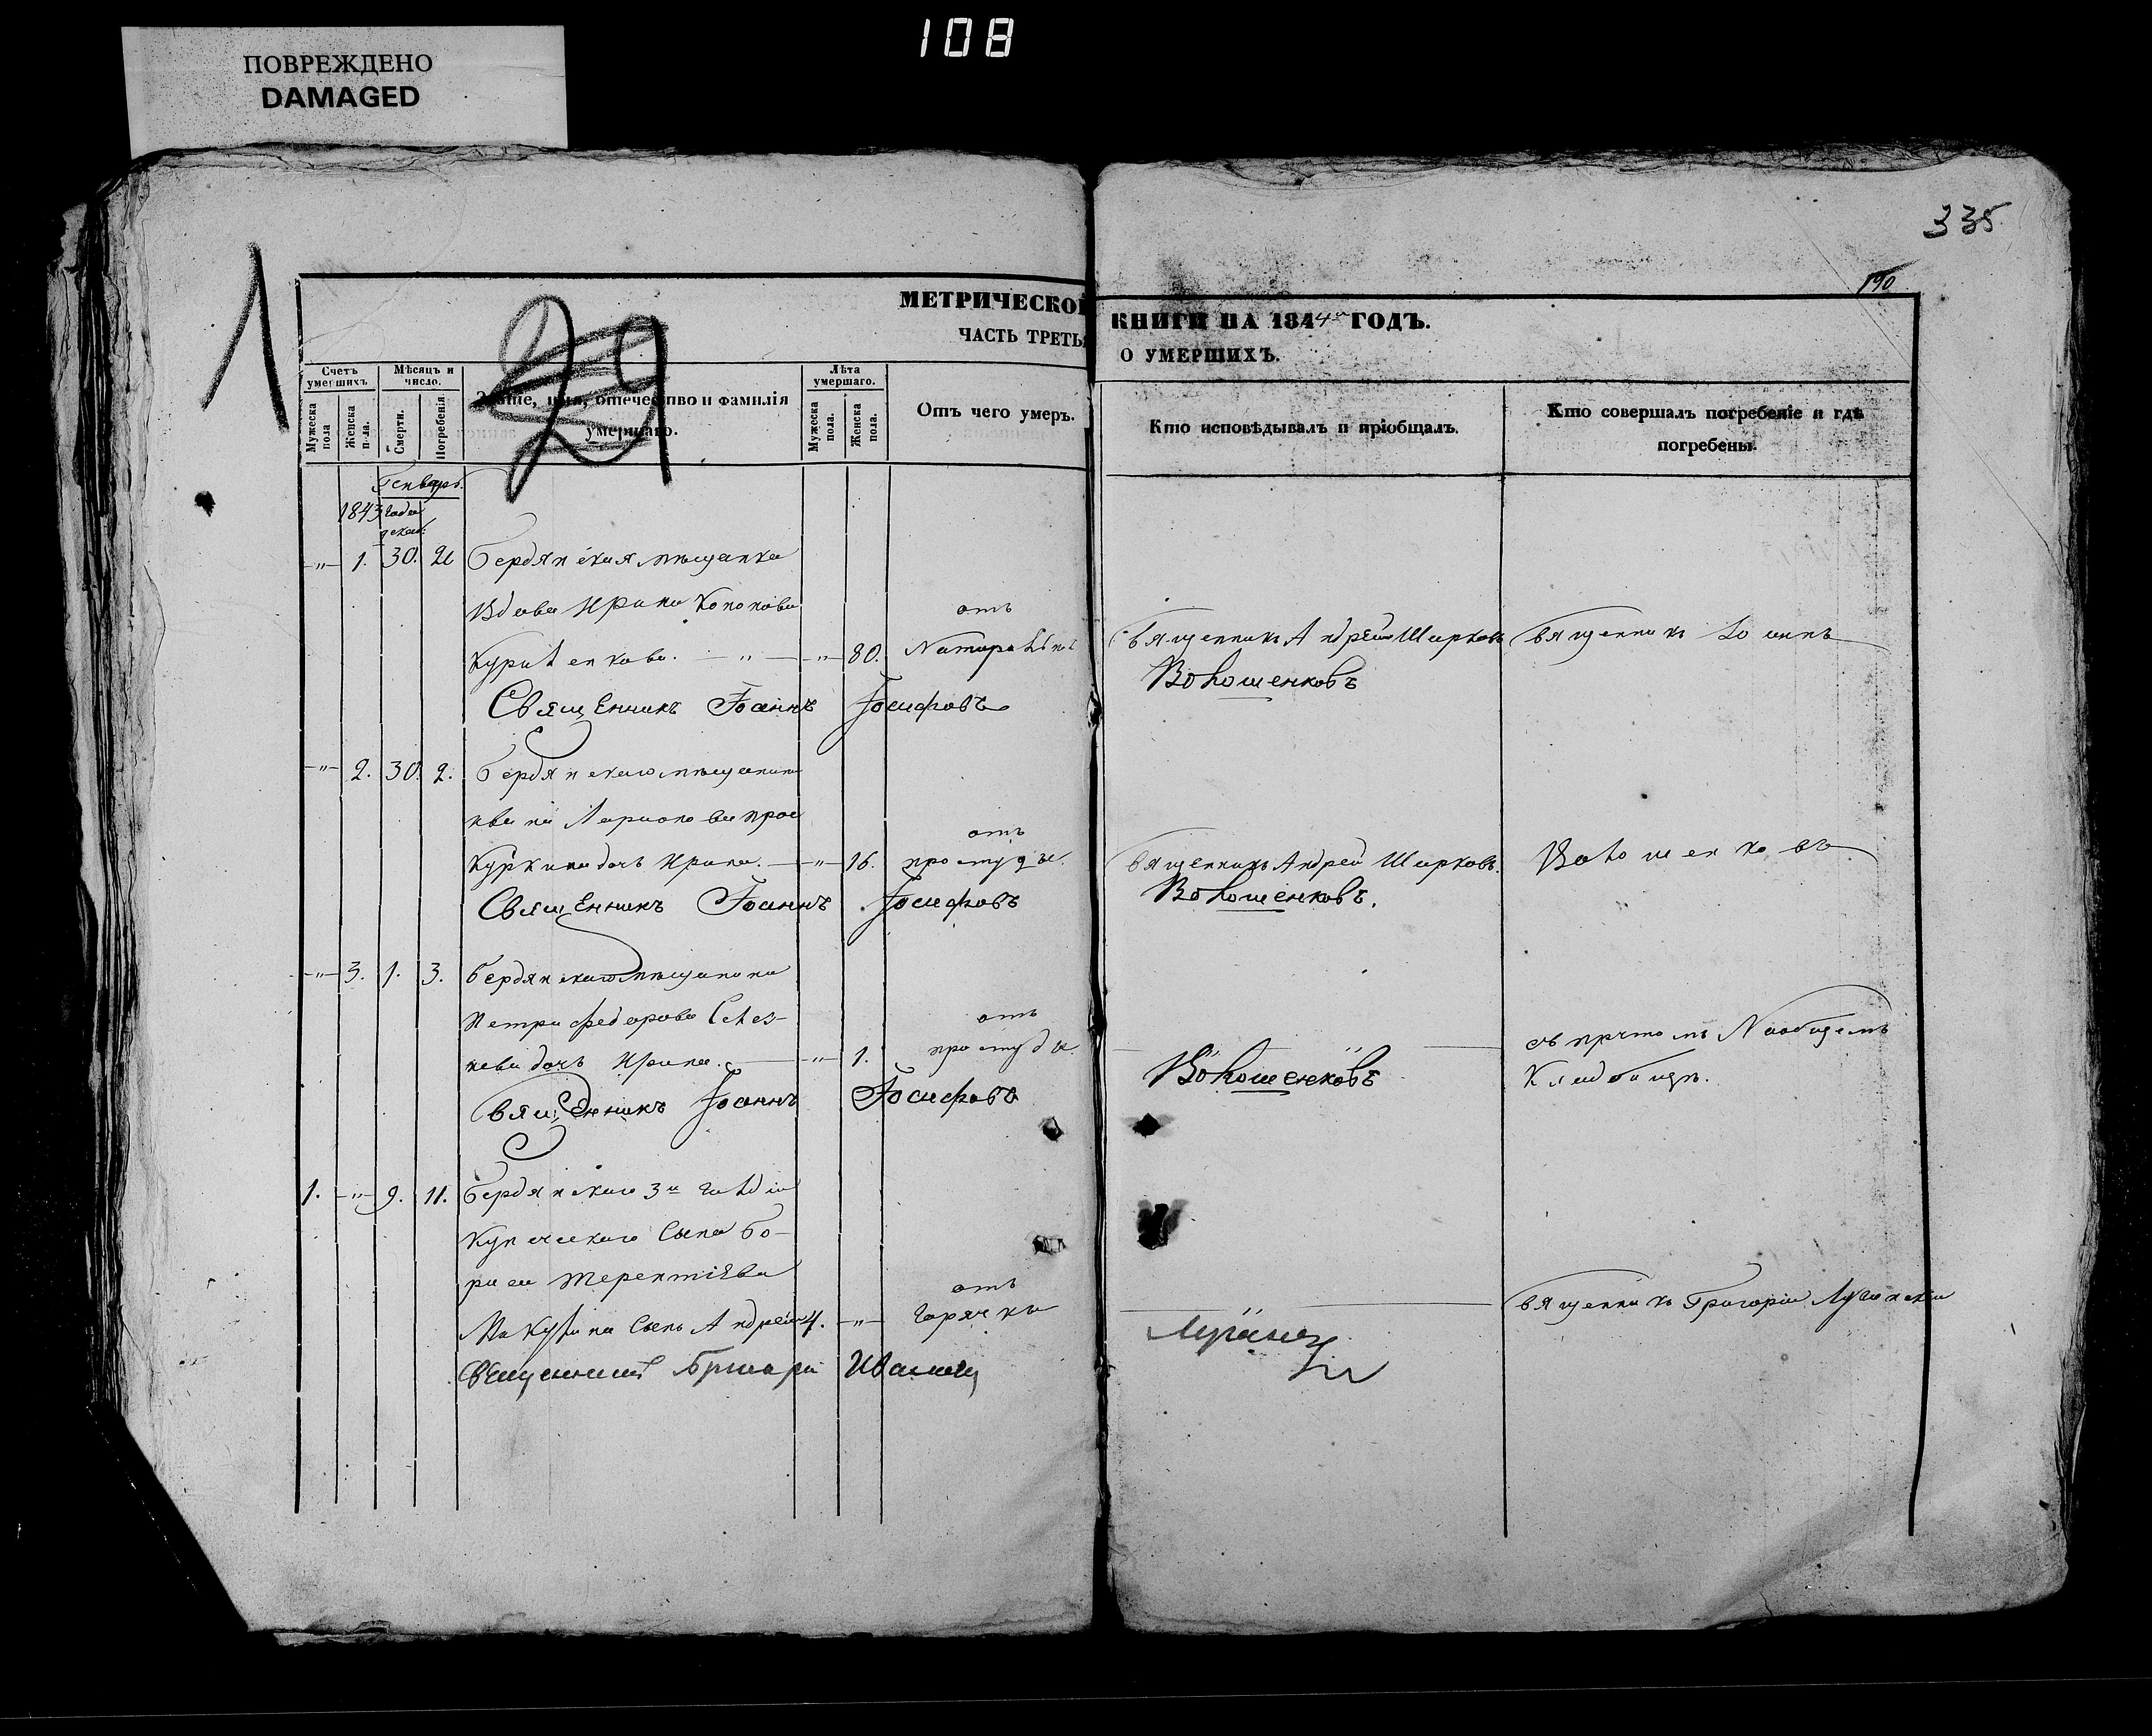 108
ПОВРЕЖДЕНО
DAMAGED
335
190
1
29
МЕТРИЧЕСКОЙ КНИГИ НА 1844 ГОДЪ.
ЧАСТЬ ТРЕТЬЯ О УМЕРШИХЪ.
Счетъ умершихъ
Мужеска пола
Женска пола.
Мѣсяцъ и число.
Смерти.
Погребенія.
Званіе, имя, отечество и фамилія умершаго.
Лѣта умершаго.
Мужеска пола.
Женска пола.
Отъ чего умеръ.
Кто исповѣдывалъ и пріобщалъ.
Кто совершалъ погребеніе и гдѣ погребены.
Генварь.
1843 года
декаб:
-"- 1. 30. Бердянская мѣщанка
Вдова Ирина Кононова отъ
-"- -"- 80. Священникъ Андрей Шарковъ Священникъ Іоаннъ
Волошенковъ
Священникъ Іоаннъ Іосифовъ
-"- 2. 30. 2. Бердянскаго мѣщанина
отъ
дочь Ирина. -"- 16. простуды. Священникъ Андрей Шарковъ. Волошенковъ
Священникъ Іоаннъ Іосифовъ Волошенковъ.
-"- 3. 1. 3. Бердянскаго мѣщанина
Петра Федорова Селез- отъ съ причтомъ На общемъ
нева дочь Ирина. -"- 1. простуды. Волошенковъ Кладбищѣ.
Священникъ Іоаннъ Іосифовъ
1. -"- 9. 11. Бердянскаго 3й гильдіи
Купеческаго Сына Бо-
риса Терентіева отъ
Сынъ Андрей 4. -"- горячки Священникъ Григорій